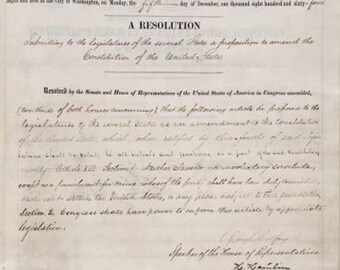 begun and held at the City of Washington, on Monday, the fifth day of December, one thousand eight hundred and sixty-four
A RESOLUTION
Submitting to the legislatures of the several States a proposition to amend the
Constitution of the United States
Resolved by the Senate and House of Representatives of the United States of America in Congress assembled,
(two thirds of both houses concurring) that the following article be proposed to the
legislatures of the several States as an amendment to the Constitution
of the United States, which, when ratified by three fourths of said legis
latures shall be valid, to all intents and purposes, as a part of the said Constitution
namely: Article XIII Section 1. Neither slavery nor involuntary servitude,
except as a punishment for crime whereof the party shall have been duly convicted,
shall exist within the United States, or any place subject to their jurisdiction
Section 2. Congress shall have power to enforce this article by appropriate
legislation.
Speaker of the House of Representatives
H. Hamlin